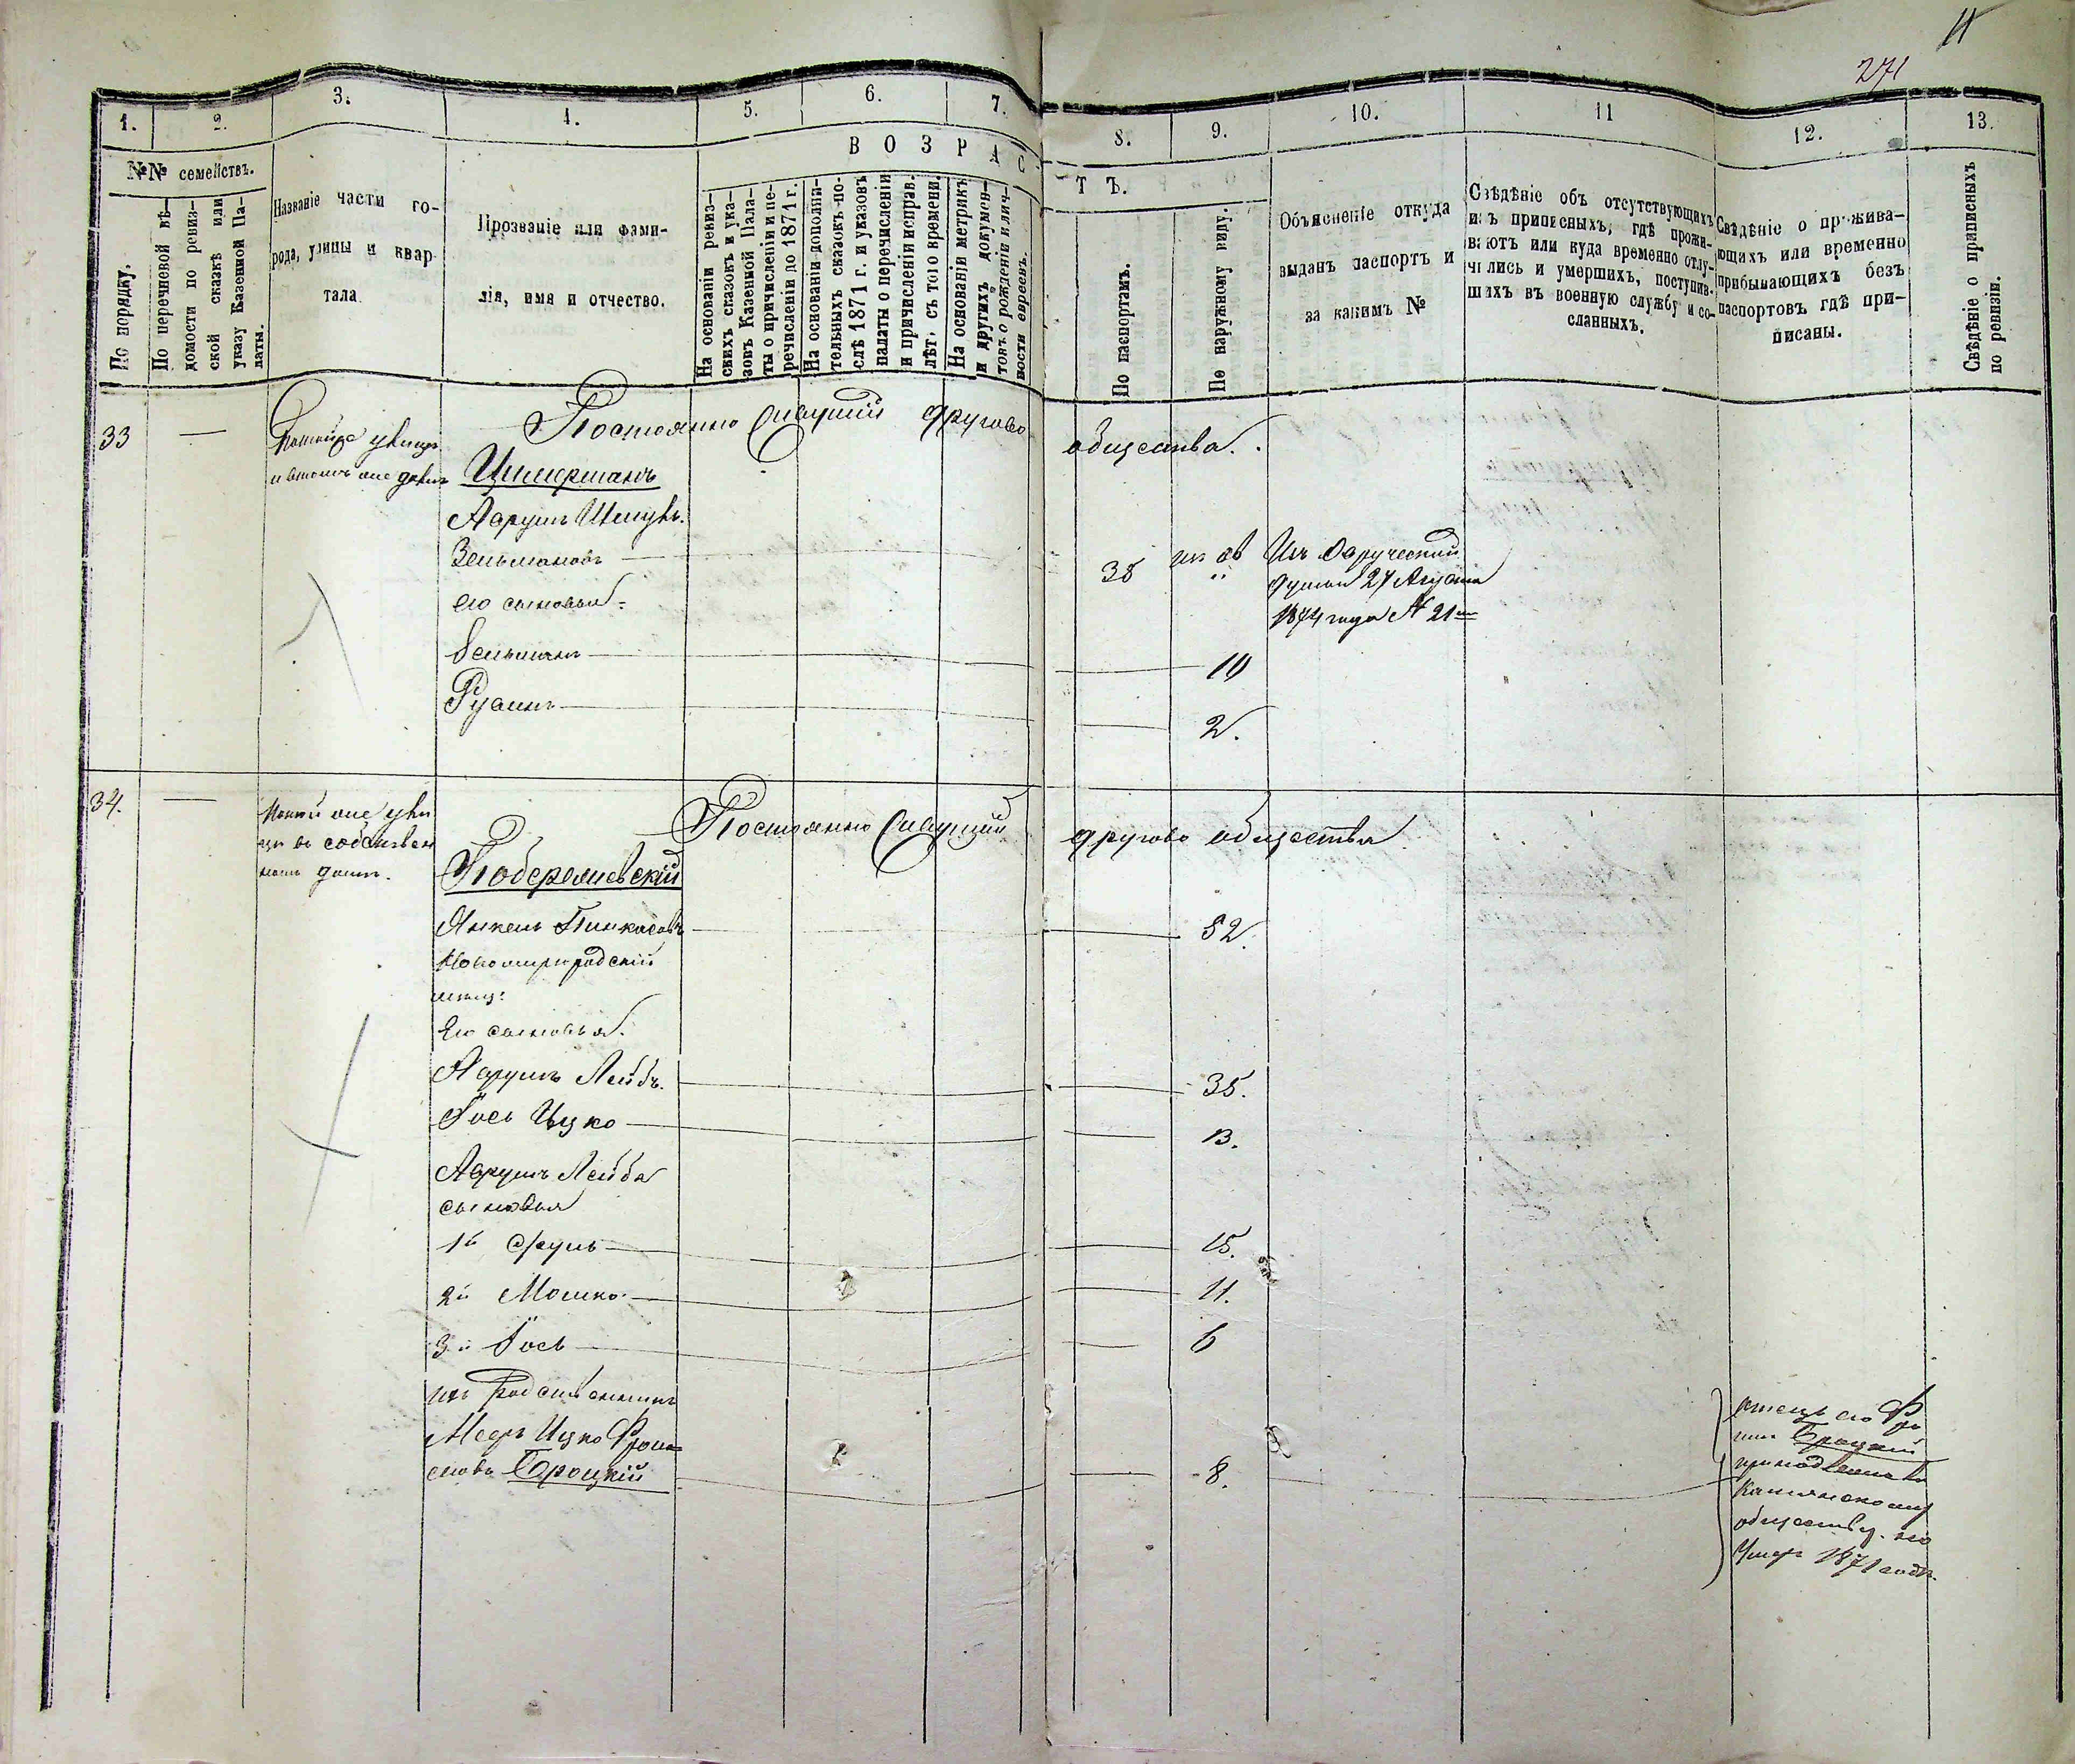 11
271
1.
2.
3.
4.
5.
6.
7.
8.
9.
10.
11
12.
13.
№№ семействъ.
По порядку.
По перечневой вѣ-
домости по ревиз-
ской сказкѣ или
указу Казенной Па-
латы.
Названіе части го-
рода, улицы и квар
тала
Прозваніе или фами-
лія, имя и отчество.
ВОЗРАС
ТЪ.
На основаніи ревиз-
скихъ сказокъ и ука-
зовъ Казенной Пала-
ты о причисленіи и пе-
речисленіи до 1871 г.
На основаніи дополни-
тельныхъ сказокъ по-
слѣ 1871 г. и указовъ
палаты о перечисленіи
и причисленіи исправ.
лѣт. съ того времени.
На основаніи метрикъ
и другихъ докумен-
товъ о рожденіи и лич-
ности евреевъ.
По паспортамъ.
По наружному виду.
Объясненіе откуда
выданъ паспортъ и
за какимъ №
Свѣдѣніе объ отсутствующихъ
изъ приписныхъ, гдѣ прожи-
ваютъ или куда временно отлу-
чились и умершихъ, поступив-
шихъ въ военную службу и со-
сланныхъ.
Свѣдѣніе о прожива-
ющихъ или временно
прибывающихъ безъ
паспортовъ гдѣ при-
писаны.
Свѣдѣніе о приписныхъ
по ревизіи.
33 —
улицы
Постоянно живущій другово общества.
Цимерманъ
Аврумъ Шмуль
Зельмановъ
38
Изъ Овручской
думы 27 Августа
1874 года № 21
его сыновья:
Зельманъ 10
Рувинъ 2.
34. —
ули
цы въ собствен
номъ домѣ.
Постоянно живущій другово общества
Поберемевскій
Янкель Пинкасовъ 52.
Новомиргородскій
мѣщ:
Его сыновья.
Аврумъ Лейбъ. 35.
Іось Ицко 13.
Аврумъ Лейба
сыновья
1й Сруль 15.
2й Мошко 11.
3й Іось 6
ихъ родственникъ
Мееръ Ицко Фрои-
мовъ Броцкій 8.
отецъ его Фро
имъ Броцкій
обществу. но
умеръ 1871 года.